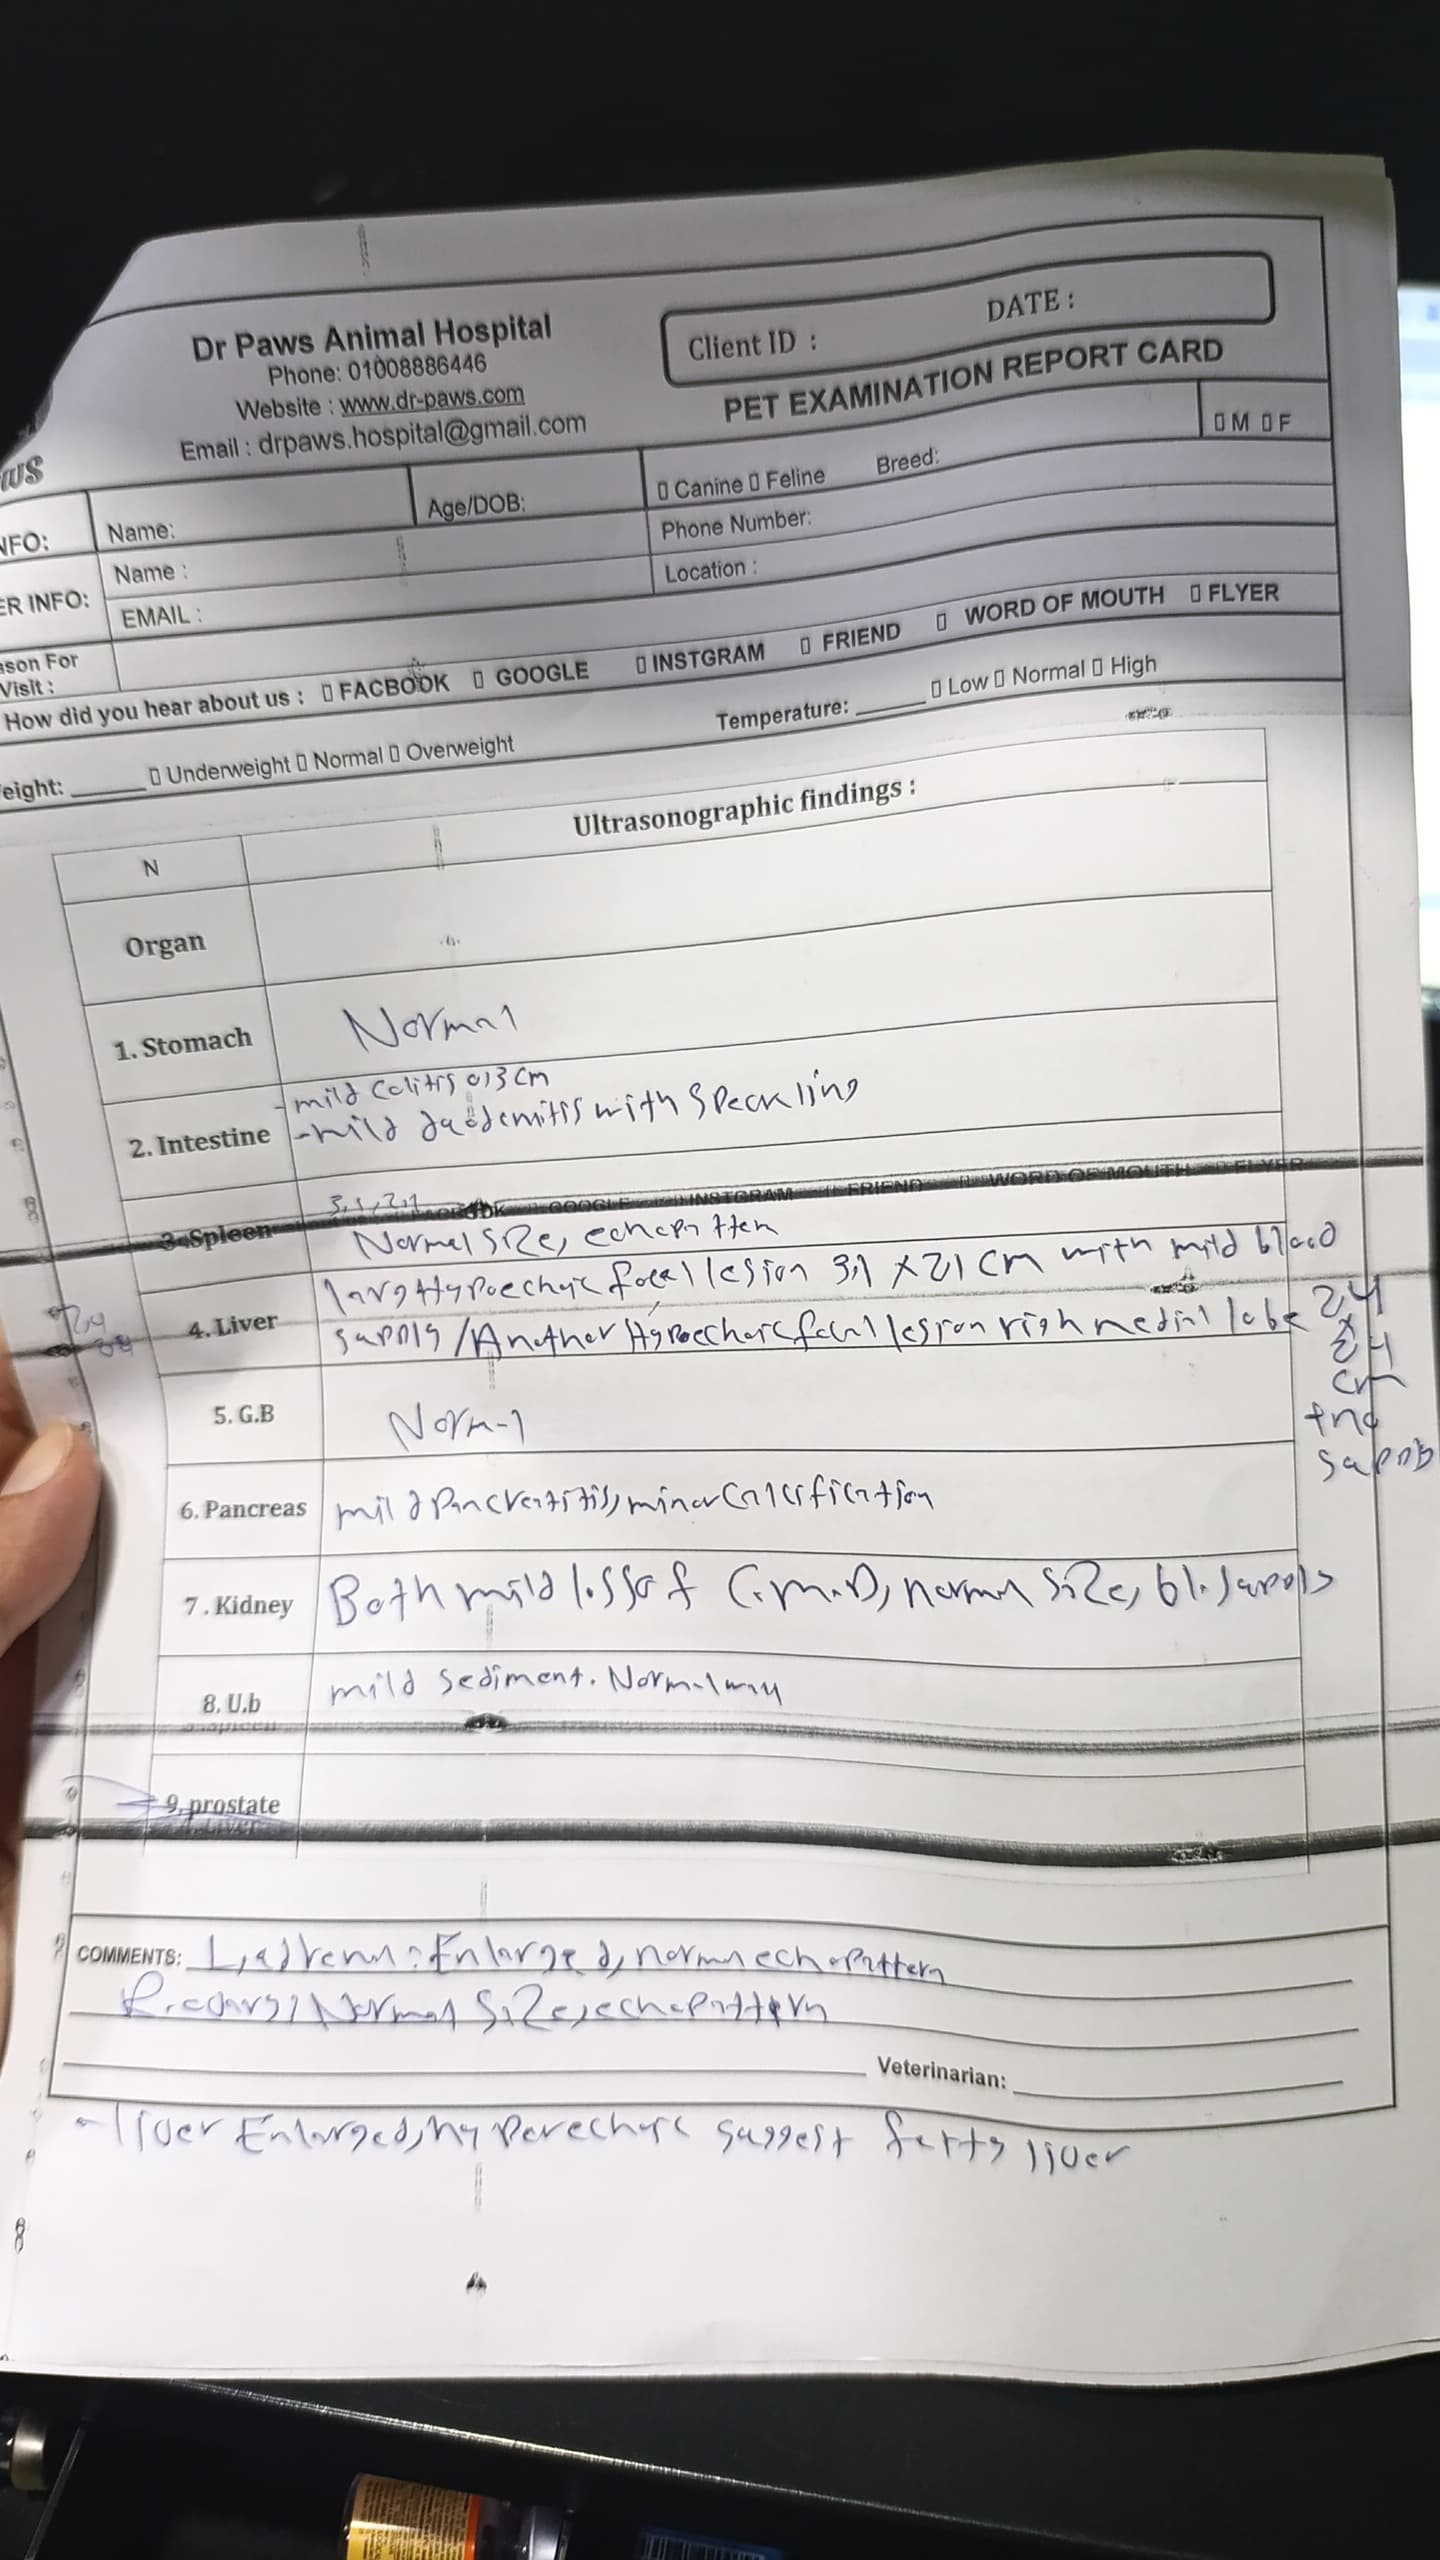 Dr Paws Animal Hospital
Phone: 01008886446
Website : www.dr-paws.com
Email : drpaws.hospital@gmail.com
Client ID :
DATE :
PET EXAMINATION REPORT CARD
NFO:
Name:
Age/DOB:
Canine Feline Breed:
M F
ER INFO:
Name :
Phone Number:
EMAIL :
Location :
son For
Visit :
How did you hear about us : FACBOOK GOOGLE INSTGRAM FRIEND WORD OF MOUTH FLYER
eight: Underweight Normal Overweight
Temperature: Low Normal High
N
Ultrasonographic findings :
Organ
1. Stomach
Normal
2. Intestine
- mild Colitis 0,3 cm
- mild with Speckling
3. Spleen
Normal Size, echopattern
4. Liver
large Hypoechoic focal lesion 3,1 x 2,1 cm with mild blood
supply / Another Hypoechoic focal lesion right medial lobe 2,4
x
2,4
cm
5. G.B
Normal
6. Pancreas
mild Pancreatitis, minor Calcification
7 . Kidney
Both mild loss of C.M.D, normal Size, bl. supply
8. U.b
mild sediment. Normal
9. prostate
COMMENTS: L, adrenal : Enlarged, normal echopattern
Normal Size, echopattern
Veterinarian:
- liver Enlarged, hyperechoic suggest fatty liver